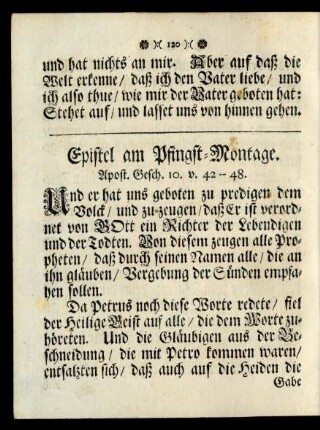 120
und hat nichts an mir. Aber auf daß die
Welt erkenne/ daß ich den Vater liebe/ und
ich also thue/ wie mir der Vater geboten hat:
Stehet auf/ und lasset uns von hinnen gehen.
Epistel am Pfingst-Montage.
Apost. Gesch. 10. v. 42 -- 48.
Und er hat uns geboten zu predigen dem
Volck/ und zu zeugen/ daß Er ist verord-
net von GOtt ein Richter der Lebendigen
und der Todten. Von diesem zeugen alle Pro-
pheten/ daß durch seinen Namen alle/ die an
ihn gläuben/ Vergebung der Sünden empfa-
hen sollen.
Da Petrus noch diese Worte redete/ fiel
der Heilige Geist auf alle/ die dem Worte zu-
höreten. Und die Gläubigen aus der Be-
schneidung/ die mit Petro kommen waren/
entsatzten sich/ daß auch auf die Heiden die
Gabe